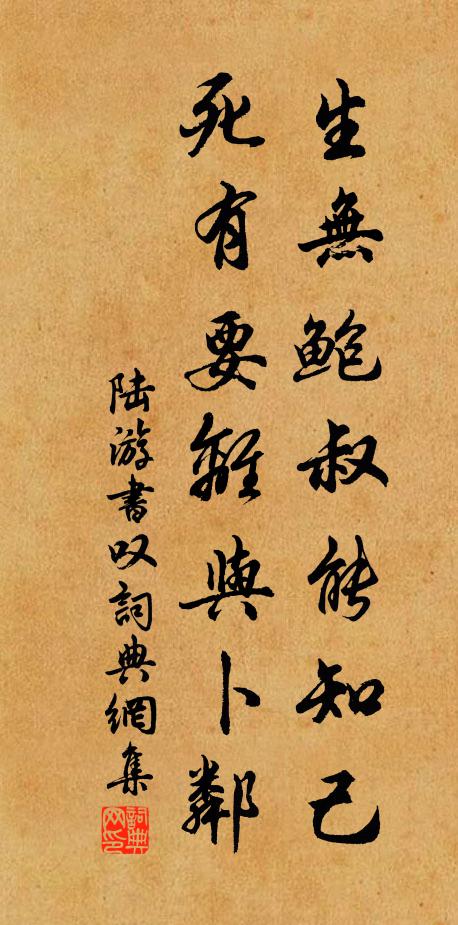 生無鲍叔能知己
死有要離與卜鄰
陆游書叹詞典網集
詞典网印